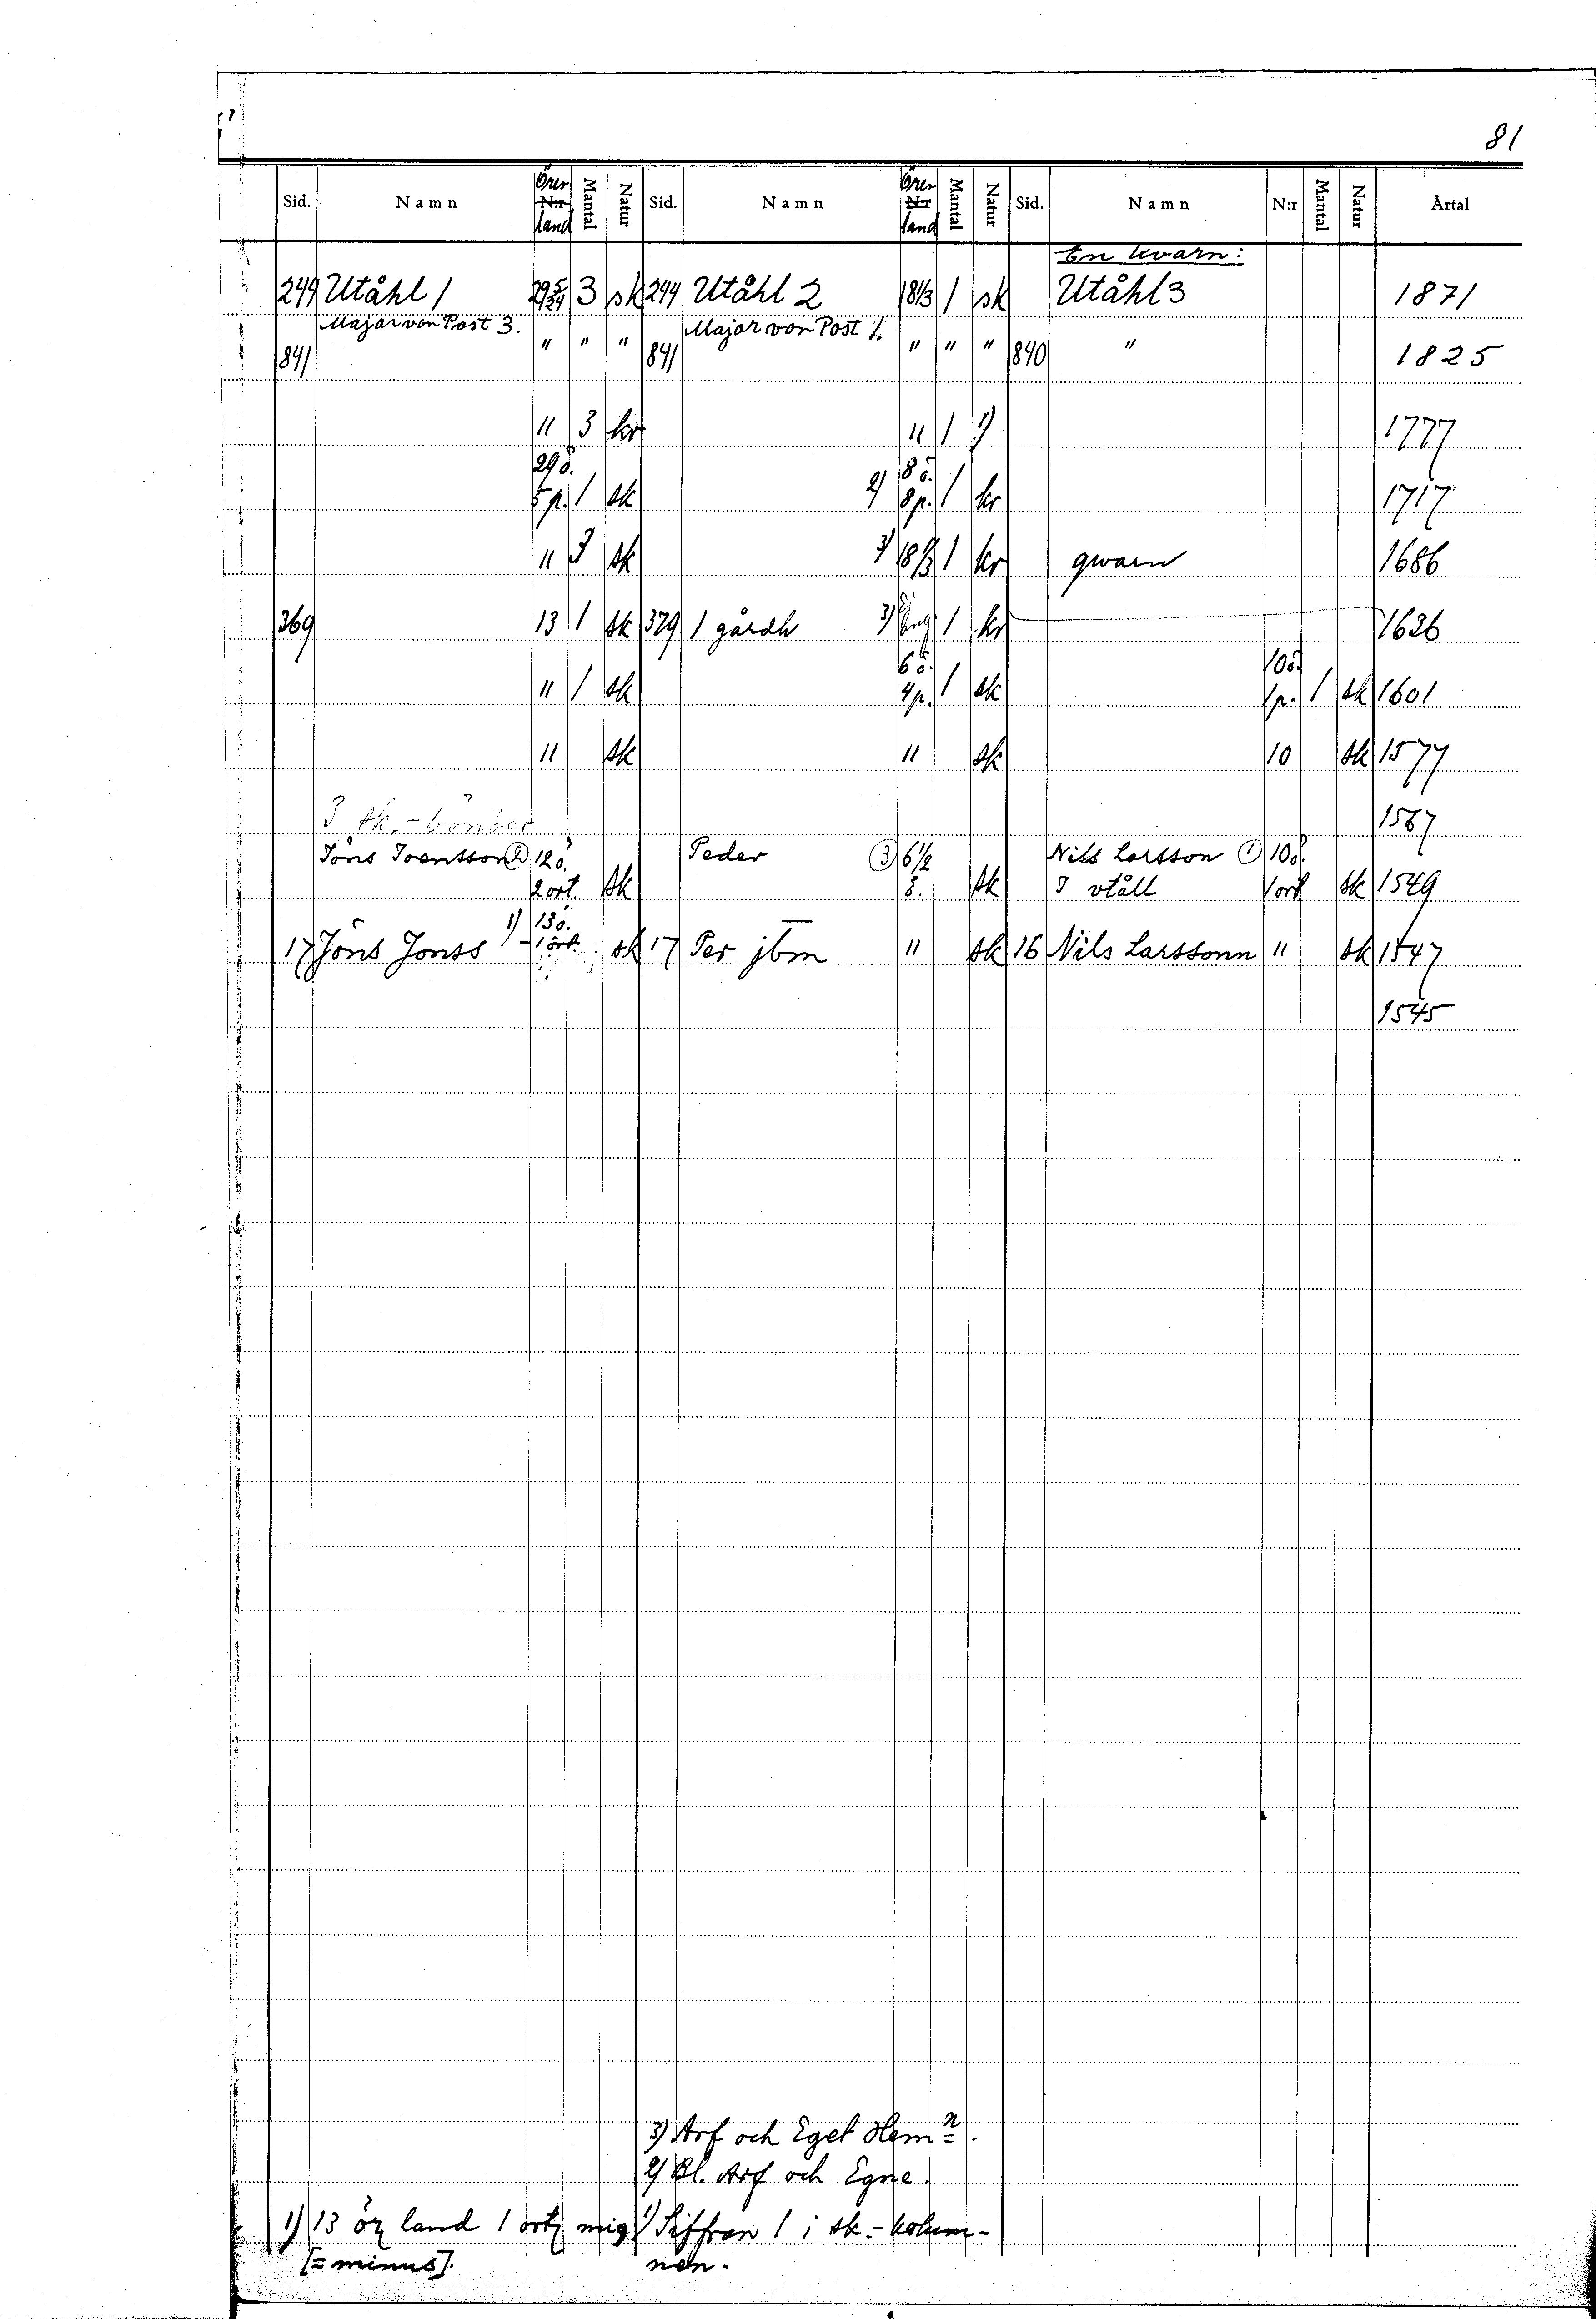 81
Sid. Namn Öres N:r land Mantal Natur Sid. Namn Öres N:r land Mantal Natur Sid. Namn N:r Mantal Natur Årtal
En kvarn:
244 Utåhl 1 29 5/24 3 sk 244 Utåhl 2 18 1/3 1 sk Utåhl 3 1871
Major von Post 3. Major von Post 1.
841 " " " 841 " " " 840 " 1825
" 3 kr " 1 1) 1777
29 ö. 8 ö.
5 p. 1 sk 2) 8 p. 1 kr 1717
" 3 sk 3) 18 1/3 1 kr qwarn 1686
369 13 1 sk 379 1 gårdh 3) 1 kr 1626
6 ö. 10 ö.
" 1 sk 4 p. 1 sk 1 p. 1 sk 1601
" sk " sk 10 sk 1577
3 sk.-bönder 1567
Jöns Joensson 2 12 ö. Peder 3 6 1/2 Nils Larsson 1 10 ö.
2 ort. sk ö. sk I vtåll 1 ort sk 1549
1) 13 ö.
17 Jöns Jonss - 1 ört. sk 17 Per jbm " sk 16 Nils Larssonn " sk 1547
1545
3) Arf och Eget Hemn.
2) Bl. Arf och Egne.
1) 13 ör land 1 ortz mig 1) Siffran 1 i sk.-kolum-
[= minus]. nen.